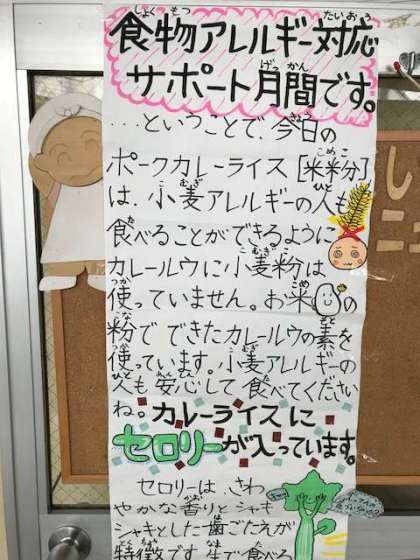 食物アレルギー対応
サポート月間です。
...ということで、今日の
ポークカレーライス[米粉]
は、小麦アレルギーの人も
食べることができるように
カレールウに小麦粉は
使っていません。お米の
粉でできたカレールウの素を
使っています。小麦アレルギーの
人も安心して食べてください
ね。カレーライスに
セロリーが入っています。
セロリーは、さわ
やかな香りとシャキ
シャキとした歯ごたえが
特徴です。生で食べる